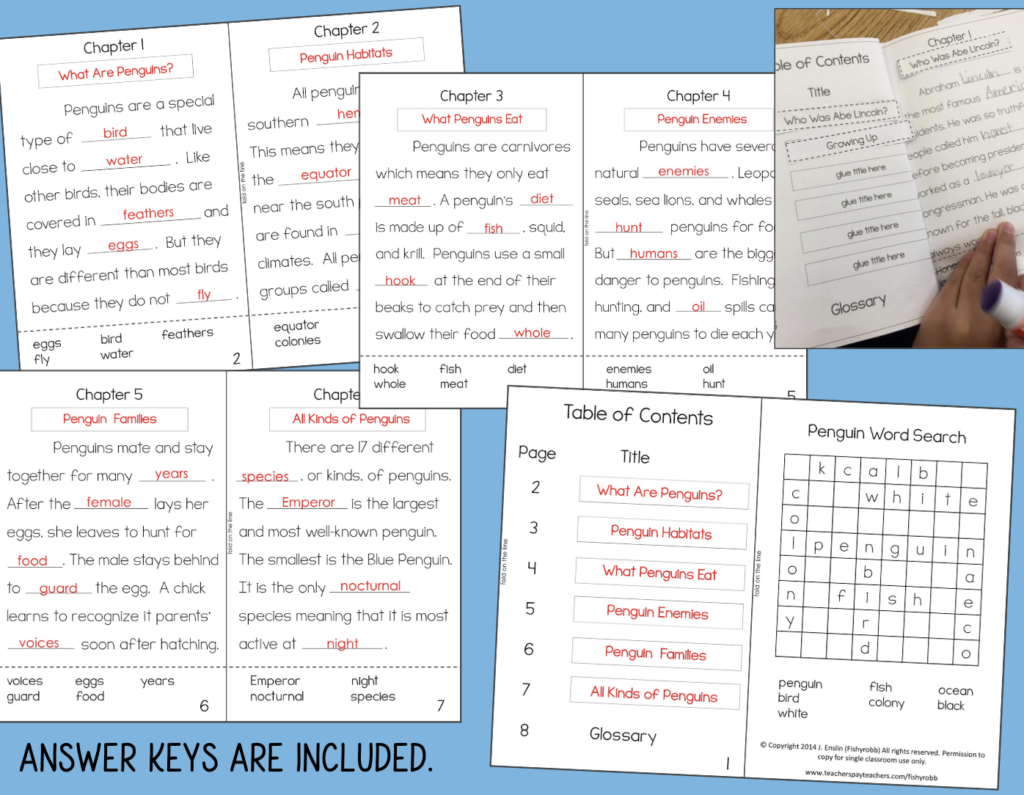 Chapter 1
What Are Penguins?
Penguins are a special
type of bird that live
close to water . Like
other birds, their bodies are
covered in feathers and
they lay eggs . But they
are different than most birds
because they do not fly .
eggs bird feathers
fly water
2
Chapter 2
Penguin Habitats
All penguin
southern hem
This means they
the equator
near the south
are found in
climates. All pe
groups called
equator
colonies
fold on the line
Chapter 3
What Penguins Eat
Penguins are carnivores
which means they only eat
meat . A penguin's diet
is made up of fish , squid,
and krill. Penguins use a small
hook at the end of their
beaks to catch prey and then
swallow their food whole .
hook fish diet
whole meat
fold on the line
Chapter 4
Penguin Enemies
Penguins have severa
natural enemies . Leopa
seals, sea lions, and whales
hunt penguins for fo
But humans are the bigg
danger to penguins. Fishing
hunting, and oil spills ca
many penguins to die each y
enemies oil
humans hunt
5
ble of Contents
Title
Who Was Abe Lincoln?
Growing Up
glue title here
glue title here
glue title here
glue title here
Glossary
Chapter 1
Who Was Abe Lincoln?
Abraham Lincoln is
the most famous America
sidents. He was so truthfu
eople called him honest
efore becoming presiden
orked as a lawyer
ongressman. He was
nown for the tall, black
always wo
Hones
Chapter 5
Penguin Families
Penguins mate and stay
together for many years .
After the female lays her
eggs, she leaves to hunt for
food . The male stays behind
to guard the egg. A chick
learns to recognize it parents'
voices soon after hatching.
voices eggs years
guard food
6
fold on the line
Chapte
All Kinds of Penguins
There are 17 different
species , or kinds, of penguins.
The Emperor is the largest
and most well-known penguin.
The smallest is the Blue Penguin.
It is the only nocturnal
species meaning that it is most
active at night .
Emperor night
nocturnal species
7
Table of Contents
Page Title
2 What Are Penguins?
3 Penguin Habitats
4 What Penguins Eat
5 Penguin Enemies
6 Penguin Families
7 All Kinds of Penguins
8 Glossary
1
fold on the line
fold on the line
Penguin Word Search
k c a l b
c w h i t e
o
l p e n g u i n
o b a
n f i s h e
y r c
d o
penguin fish ocean
bird colony black
white
© Copyright 2014 J. Enslin (Fishyrobb) All rights reserved. Permission to
copy for single classroom use only.
www.teacherspayteachers.com/fishyrobb
ANSWER KEYS ARE INCLUDED.